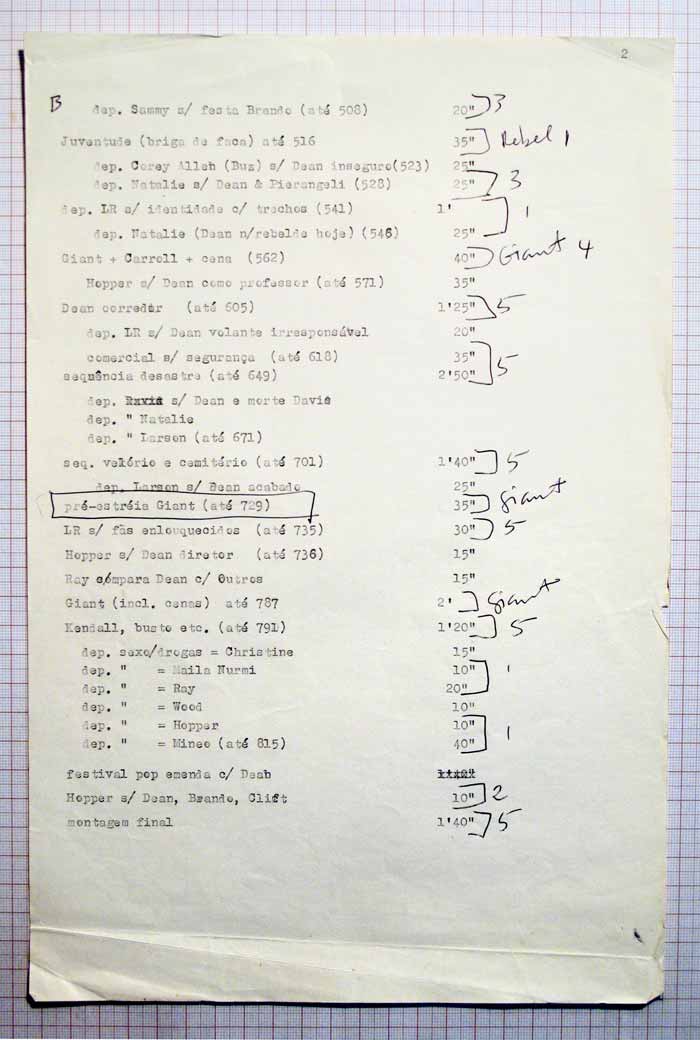 2
B dep. Sammy s/ festa Brando (até 508) 20" 3
Juventude (briga de faca) até 516 35" Rebel 1
dep. Corey Alleh (Buz) s/ Dean inseguro(523) 25"
dep. Natalie s/ Dean & Pierangeli (528) 25" 3
dep. LR s/ identidade c/ trechos (541) 1' 1
dep. Natalie (Dean n/rebelde hoje) (546) 25"
Giant + Carroll + cena (562) 40" Giant 4
Hopper s/ Dean como professor (até 571) 35"
Dean corredor (até 605) 1'25" 5
dep. LR s/ Dean volante irresponsável 20"
comercial s/ segurança (até 618) 35"
sequência desastre (até 649) 2'50" 5
dep. s/ Dean e morte Davis
dep. " Natalie
dep. " Larson (até 671)
seq. velório e cemitério (até 701) 1'40" 5
dep. Larson s/ Dean acabado 25"
pré-estréia Giant (até 729) 35" Giant
LR s/ fãs enlouquecidos (até 735) 30" 5
Hopper s/ Dean diretor (até 736) 15"
Ray compara Dean c/ Outros 15"
Giant (incl. cenas) até 787 2' Giant
Kendall, busto etc. (até 791) 1'20" 5
dep. sexo/drogas = Christine 15"
dep. " = Maila Nurmi 10" 1
dep. " = Ray 20"
dep. " = Wood 10"
dep. " = Hopper 10" 1
dep. " = Mineo (até 815) 40"
festival pop emenda c/ Deab
Hopper s/ Dean, Brando, Clift 10" 2
montagem final 1'40" 5